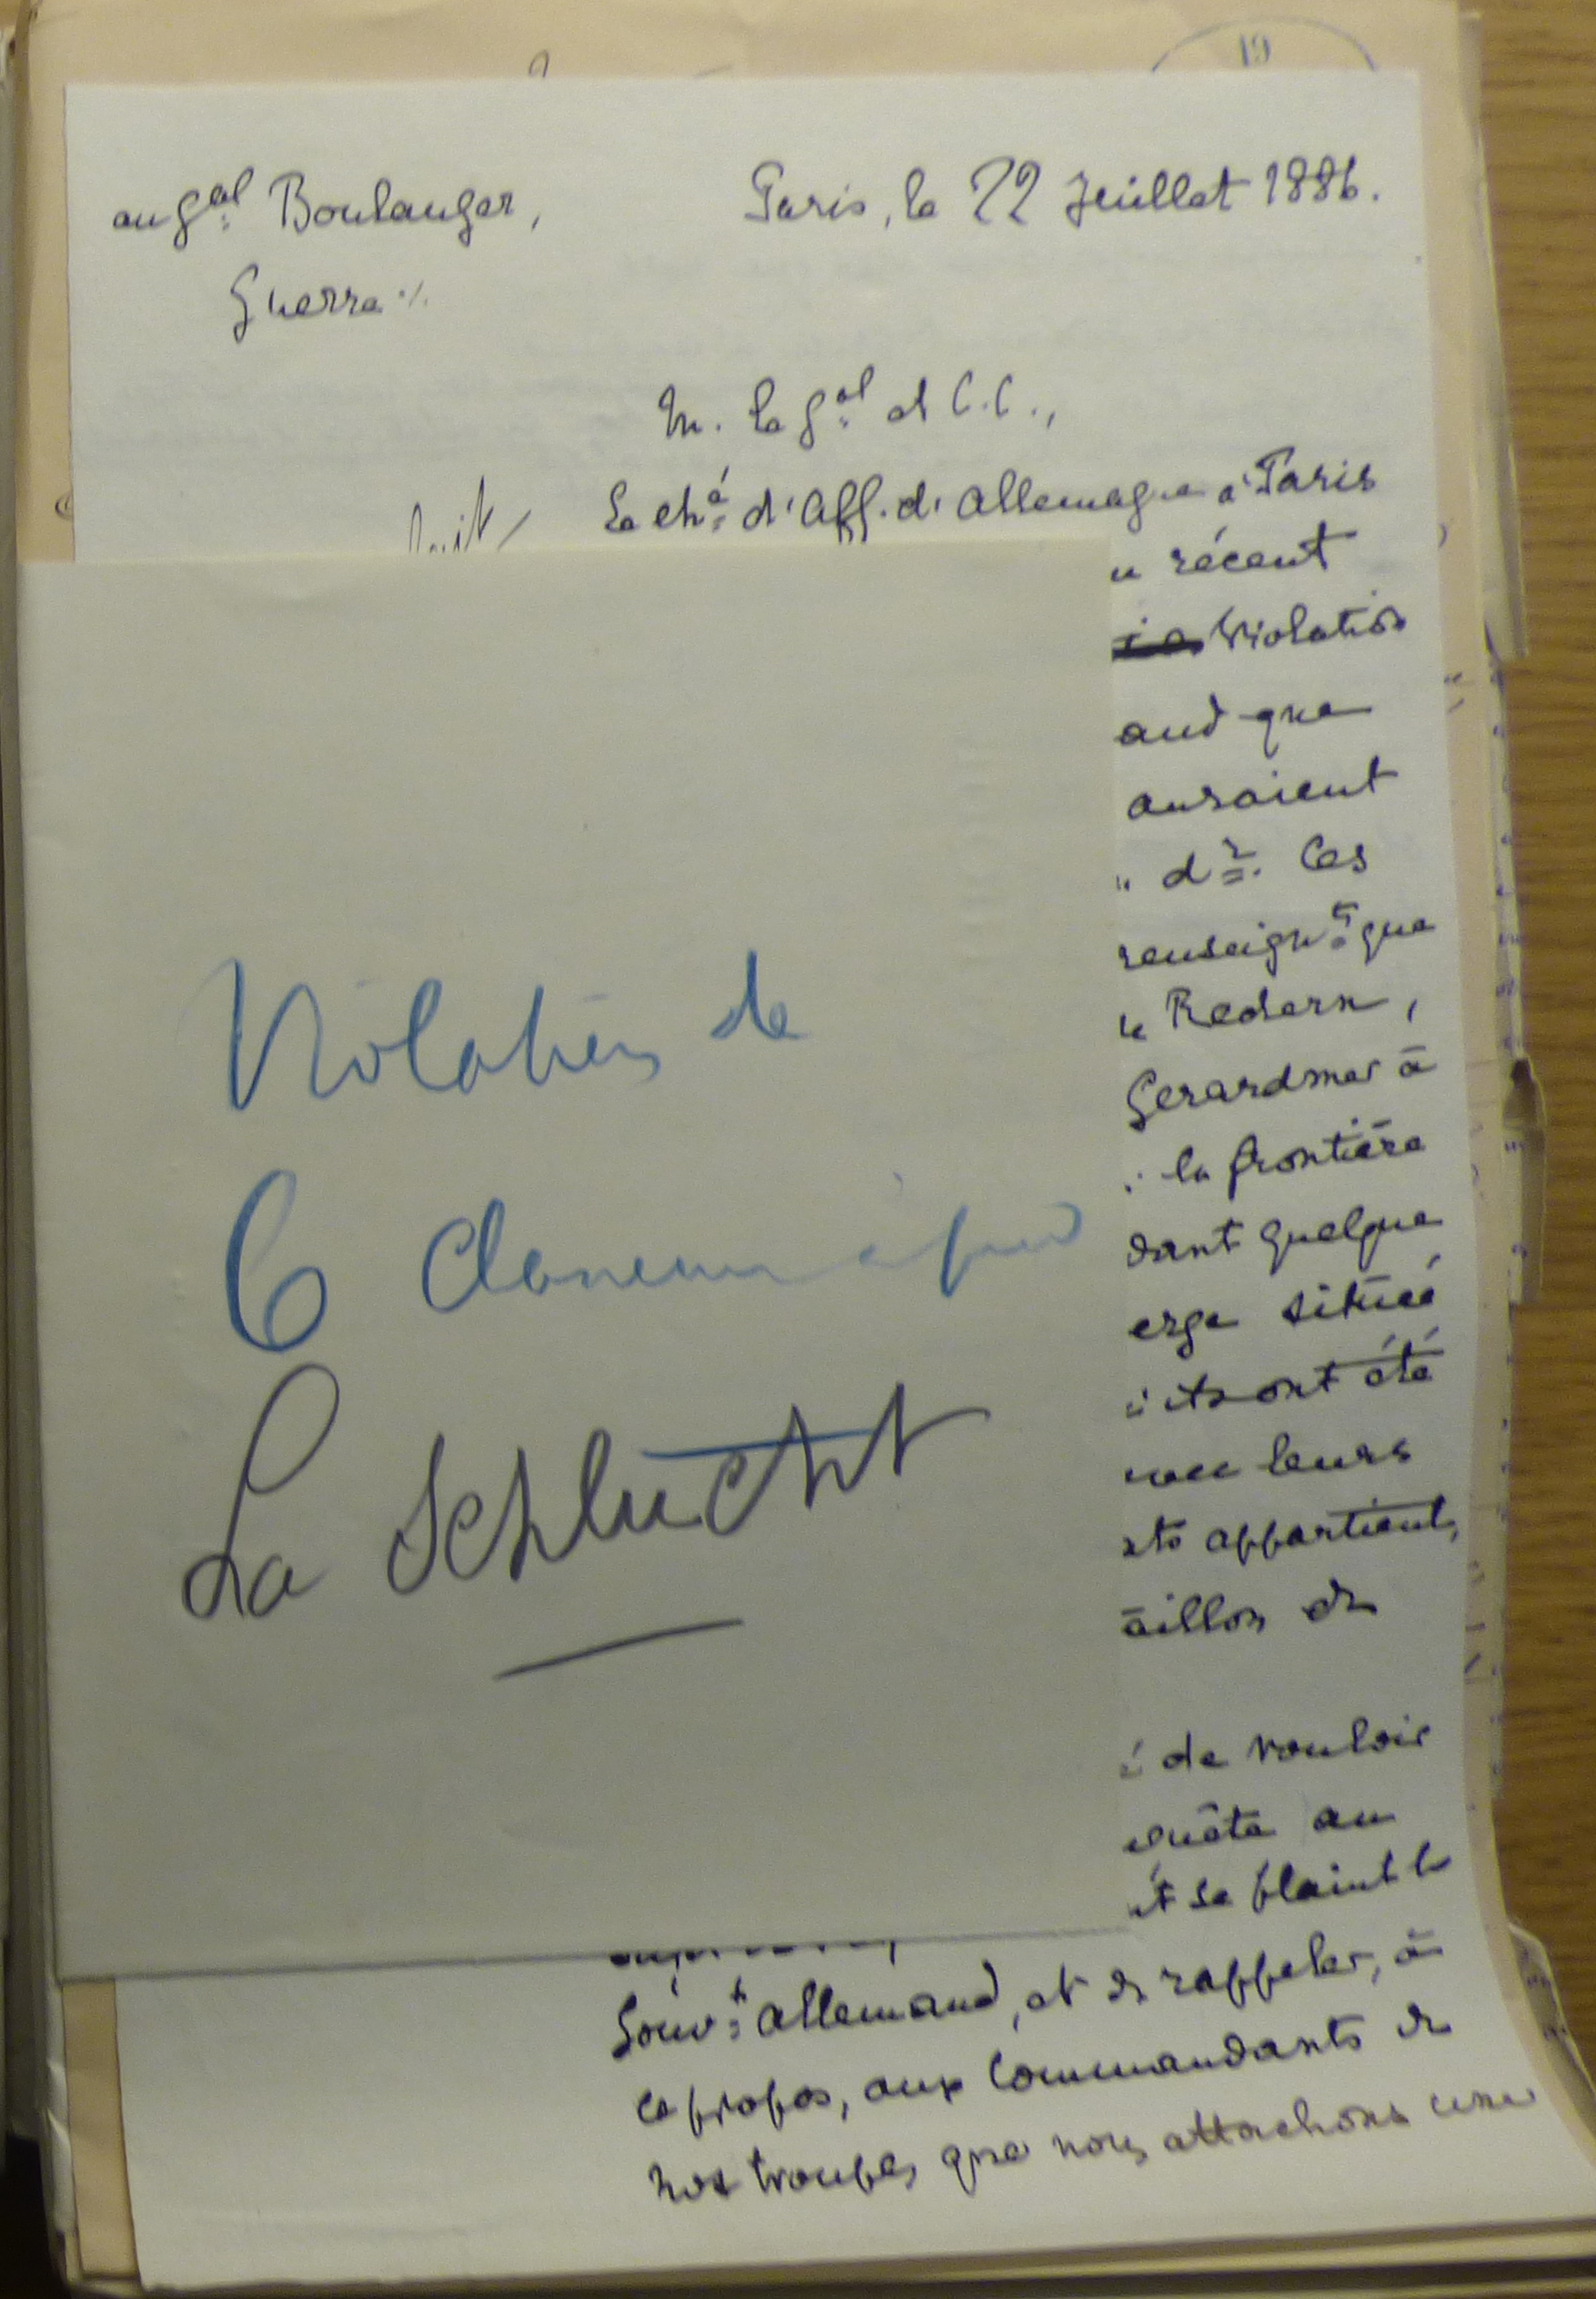 19
au Gal Boulanger,
Guerre ./.
Paris, le 22 Juillet 1886.
M. le Gal et C.C.,
Le ché d'Aff. d'Allemagne à Paris
récent
violation
and que
auraient
dr. Ces
renseignts que
Redern,
Gerardmer à
la frontière
dant quelque
erge située
ils ont été
leurs
appartient,
aillon de
de vouloir
quête au
t se plaint le
Gouvt allemand, et de rappeler, à
ce propos, aux Commandants de
nos troupes que nous attachons une
Violation de
La Schlucht